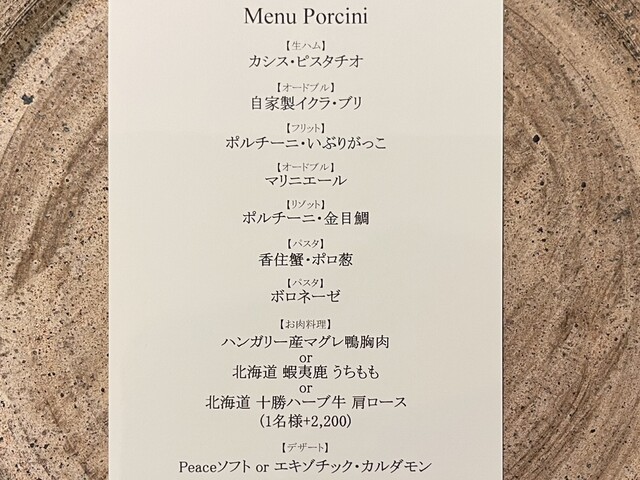 Menu Porcini
【生ハム】
カシス・ピスタチオ
【オードブル】
自家製イクラ・ブリ
【フリット】
ポルチーニ・いぶりがっこ
【オードブル】
マリニエール
【リゾット】
ポルチーニ・金目鯛
【パスタ】
香住蟹・ポロ葱
【パスタ】
ボロネーゼ
【お肉料理】
ハンガリー産マグレ鴨胸肉
or
北海道 蝦夷鹿 うちもも
or
北海道 十勝ハーブ牛 肩ロース
(1名様+2,200)
【デザート】
Peaceソフト or エキゾチック・カルダモン